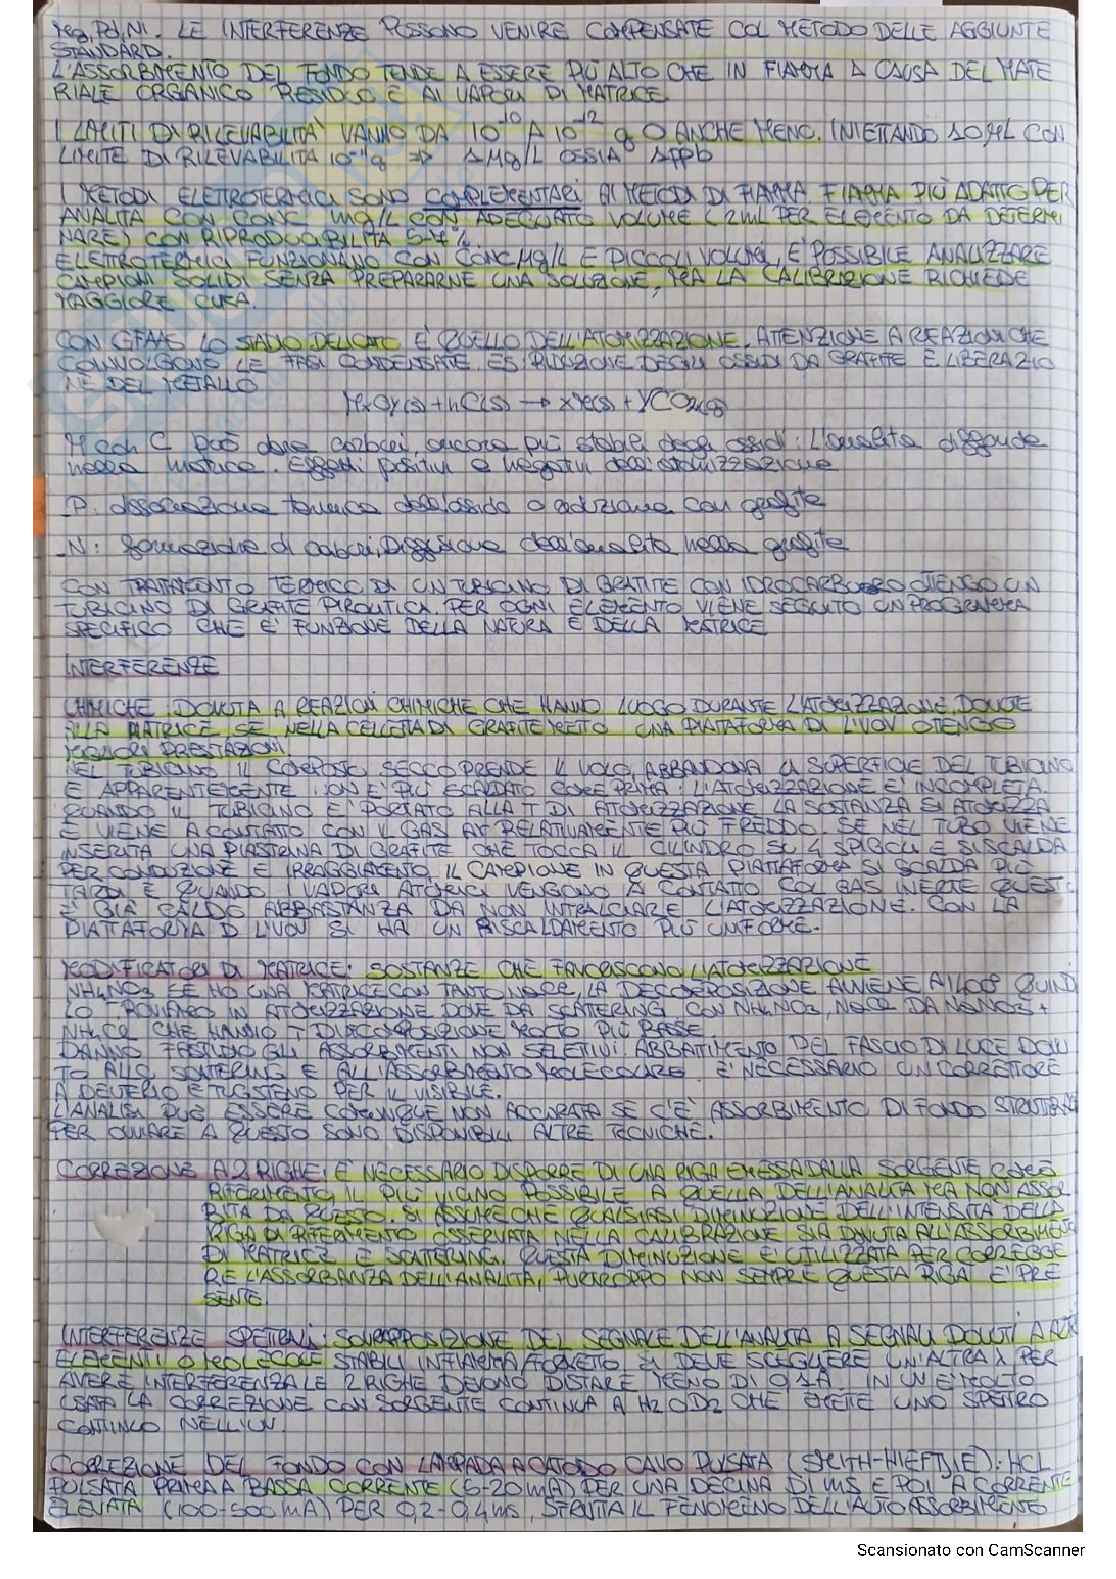 Mg, Pd, Ni. LE INTERFERENZE POSSONO VENIRE COMPENSATE COL METODO DELLE AGGIUNTE
STANDARD.
L'ASSORBIMENTO DEL FONDO TENDE A ESSERE PIÙ ALTO CHE IN FIAMMA A CAUSA DEL MATE
RIALE ORGANICO RESIDUO E AI VAPORI DI MATRICE.
I LIMITI DI RILEVABILITÀ VANNO DA 10^-10 A 10^-12 g O ANCHE MENO. INIETTANDO 10 μL CON
LIMITE DI RILEVABILITÀ 10^-11 g => 1 μg/L OSSIA 1 ppb
I METODI ELETTROTERMICI SONO COMPLEMENTARI AI METODI DI FIAMMA. FIAMMA PIÙ ADATTO PER
ANALITA CON CONC mg/L CON ADEGUATO VOLUME (2 mL PER ELEMENTO DA DETERMI
NARE) CON RIPRODUCIBILITÀ 5-7%.
ELETTROTERMICI FUNZIONANO CON CONC μg/L E PICCOLI VOLUMI, E' POSSIBILE ANALIZZARE
CAMPIONI SOLIDI SENZA PREPARARNE UNA SOLUZIONE, MA LA CALIBRAZIONE RICHIEDE
MAGGIORE CURA.
CON GFAAS LO STADIO DELICATO E' QUELLO DELL'ATOMIZZAZIONE. ATTENZIONE A REAZIONI CHE
COINVOLGONO LE FASI CONDENSATE. ES RIDUZIONE DEGLI OSSIDI DA GRAFITE E LIBERAZIO
NE DEL METALLO
MxOy(s) + nC(s) → xM(s) + yCO(g)
M con C può dare carburi, ancora più stabili degli ossidi: l'analita diffonde
nella matrice. Effetti positivi e negativi dell'atomizzazione
_P: dissociazione termica dell'ossido o riduzione con grafite
_N: formazione di carburi, Diffusione dell'analita nella grafite
CON TRATTAMENTO TERMICO DI UN TUBICINO DI GRAFITE CON IDROCARBURO OTTENGO UN
TUBICINO DI GRAFITE PIROLITICA. PER OGNI ELEMENTO VIENE SEGUITO UN PROGRAMMA
SPECIFICO CHE E' FUNZIONE DELLA NATURA E DELLA MATRICE
INTERFERENZE
CHIMICHE: DOVUTA A REAZIONI CHIMICHE CHE HANNO LUOGO DURANTE L'ATOMIZZAZIONE, DOVUTE
ALLA MATRICE. SE NELLA CELLETTA DI GRAFITE METTO UNA PIATTAFORMA DI L'VOV OTTENGO
MIGLIORI PRESTAZIONI.
NEL TUBICINO IL COMPOSTO SECCO PRENDE IL VOLO, ABBANDONA LA SUPERFICIE DEL TUBICINO
E APPARENTEMENTE NON E' PIÙ SCALDATO COME PRIMA: L'ATOMIZZAZIONE E' INCOMPLETA.
QUANDO IL TUBICINO E' PORTATO ALLA T DI ATOMIZZAZIONE LA SOSTANZA SI ATOMIZZA
E VIENE A CONTATTO CON IL GAS Ar RELATIVAMENTE PIÙ FREDDO. SE NEL TUBO VIENE
INSERITA UNA PIASTRINA DI GRAFITE CHE TOCCA IL CILINDRO SU 4 SPIGOLI E SI SCALDA
PER CONDUZIONE E IRRAGGIAMENTO, IL CAMPIONE IN QUESTA PIATTAFORMA SI SCALDA PIÙ
TARDI E QUANDO I VAPORI ATOMICI VENGONO A CONTATTO COL GAS INERTE QUESTO
E' GIÀ CALDO ABBASTANZA DA NON INTRALCIARE L'ATOMIZZAZIONE. CON LA
PIATTAFORMA DI L'VOV SI HA UN RISCALDAMENTO PIÙ UNIFORME.
MODIFICATORI DI MATRICE: SOSTANZE CHE FAVORISCONO L'ATOMIZZAZIONE
NH4NO3 SE HO UNA MATRICE CON TANTO NaCl, LA DECOMPOSIZIONE AVVIENE A 1400° QUINDI
LO RITROVO IN ATOMIZZAZIONE DOVE DA SCATTERING CON NH4NO3, NaCl DA NaNO3 +
NH4Cl CHE HANNO T DI DECOMPOSIZIONE MOLTO PIÙ BASSE
DANNO FASTIDIO GLI ASSORBIMENTI NON SELETTIVI: ABBATTIMENTO DEL FASCIO DI LUCE DOVU
TO ALLO SCATTERING E ALL'ASSORBIMENTO MOLECOLARE. E' NECESSARIO UN CORRETTORE
A DEUTERIO E TUGSTENO PER IL VISIBILE.
L'ANALISI PUÒ ESSERE COMUNQUE NON ACCURATA SE C'E' ASSORBIMENTO DI FONDO
PER OVVIARE A QUESTO SONO DISPONIBILI ALTRE TECNICHE.
CORREZIONE A 2 RIGHE: E' NECESSARIO DISPORRE DI UNA RIGA EMESSA DALLA SORGENTE COME
RIFERIMENTO, IL PIÙ VICINO POSSIBILE A QUELLA DELL'ANALITA MA NON ASSOR
BITA DA QUESTO. SI ASSUME CHE QUALSIASI DIMINUZIONE DELL'INTENSITÀ DELLA
RIGA DI RIFERIMENTO OSSERVATA NELLA CALIBRAZIONE SIA DOVUTA ALL'ASSORBIMENTO
DI MATRICE E SCATTERING. QUESTA DIMINUZIONE E' UTILIZZATA PER CORREGGE
RE L'ASSORBANZA DELL'ANALITA, PURTROPPO NON SEMPRE QUESTA RIGA E' PRE
SENTE.
INTERFERENZE SPETTRALI: SOVRAPPOSIZIONE DEL SEGNALE DELL'ANALITA A SEGNALI DOVUTI A ALTRI
ELEMENTI O MOLECOLE STABILI IN FIAMMA/FORNETTO. SI DEVE SCEGLIERE UN'ALTRA λ PER
AVERE INTERFERENZA LE 2 RIGHE DEVONO DISTARE MENO DI 0,1Å. IN UV E' MOLTO
USATA LA CORREZIONE CON SORGENTE CONTINUA A H2 O D2 CHE EMETTE UNO SPETTRO
CONTINUO NELL'UV.
CORREZIONE DEL FONDO CON LAMPADA A CATODO CAVO PULSATA (SMITH-HIEFTJE): HCL
PULSATA PRIMA A BASSA CORRENTE (6-20 mA) PER UNA DECINA DI MS E POI A CORRENTE
ELEVATA (100-500 mA) PER 0,2-0,4 ms, SFRUTTA IL FENOMENO DELL'AUTOASSORBIMENTO
Scansionato con CamScanner